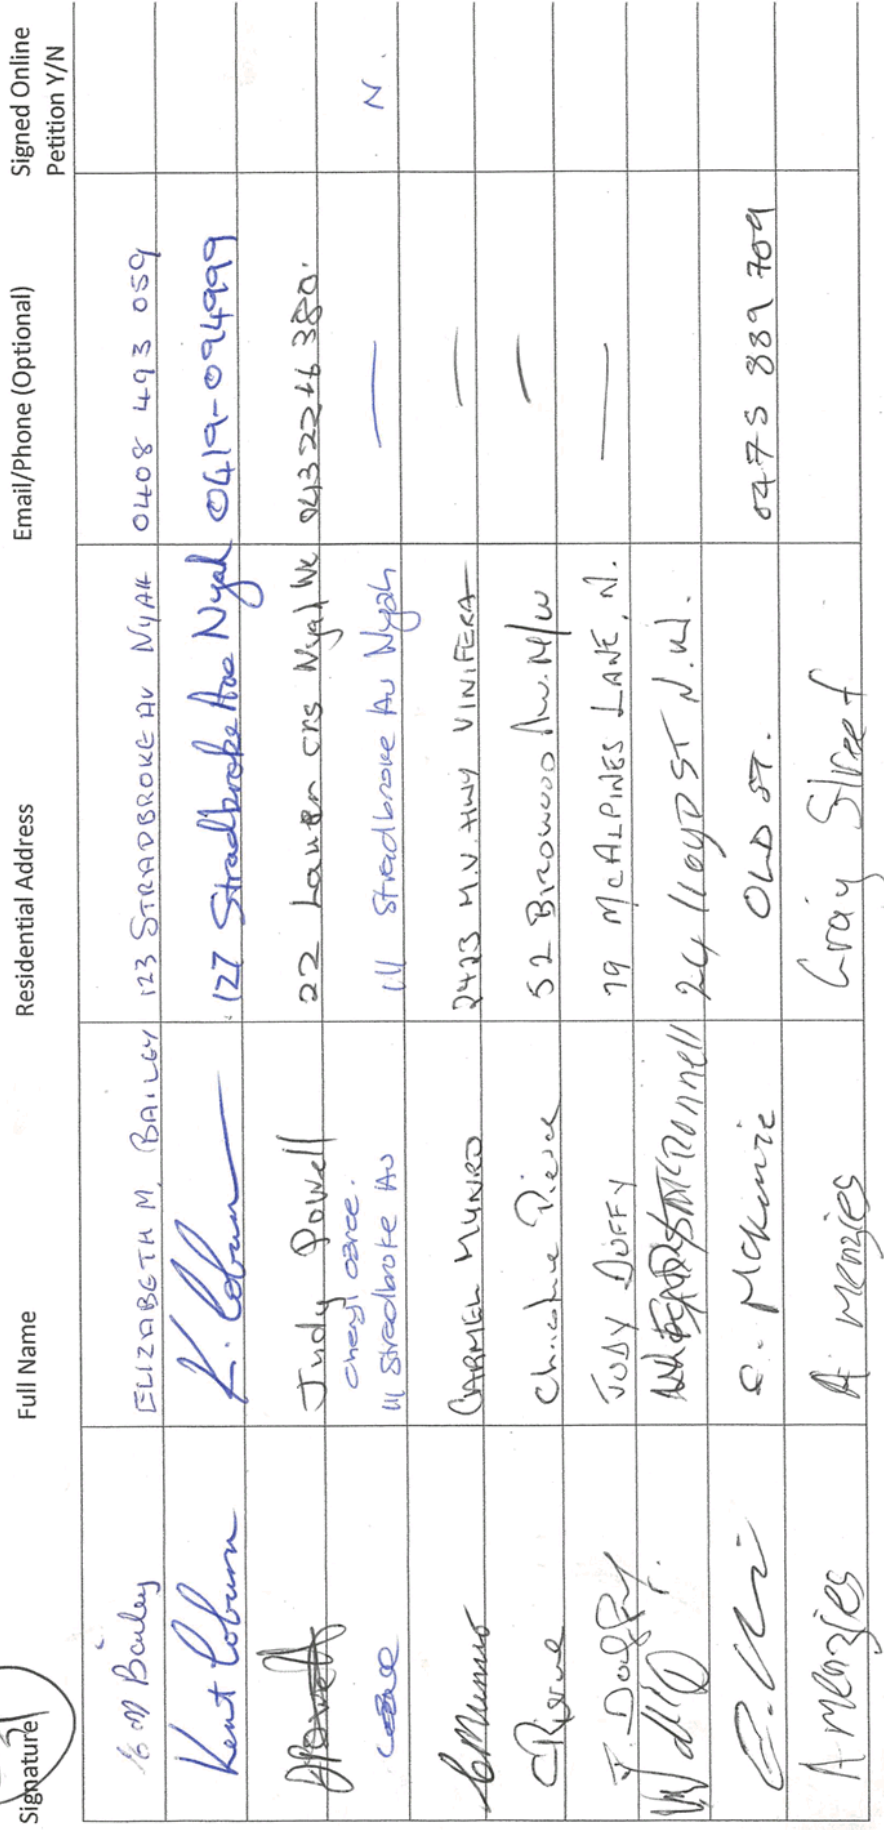 Signature Full Name Residential Address Email/Phone (Optional) Signed Online
Petition Y/N
E M Bailey ELIZABETH M. BAILEY 123 STRADBROKE AV NYAH 0408 493 059
Kent Coburn K. Coburn 127 Stradbroke Ave Nyah 0419-094999
JPowell Judy Powell 22 Lauren crs Nyah We
Cheryl
111 Stradbroke Av 111 Stradbroke Av Nyah — N.
CMunro CARMEL MUNRO 2423 M.V. HWY VINIFERA —
CPierce Christine Pierce 52 — 
J. Duffy. JUDY DUFFY 79 McALPINES LANE, N. —
McDonnell 24 lloyd ST N.W.
McKenzie OLD ST. 0475 889 709
A Menzies A Menzies Gray Street